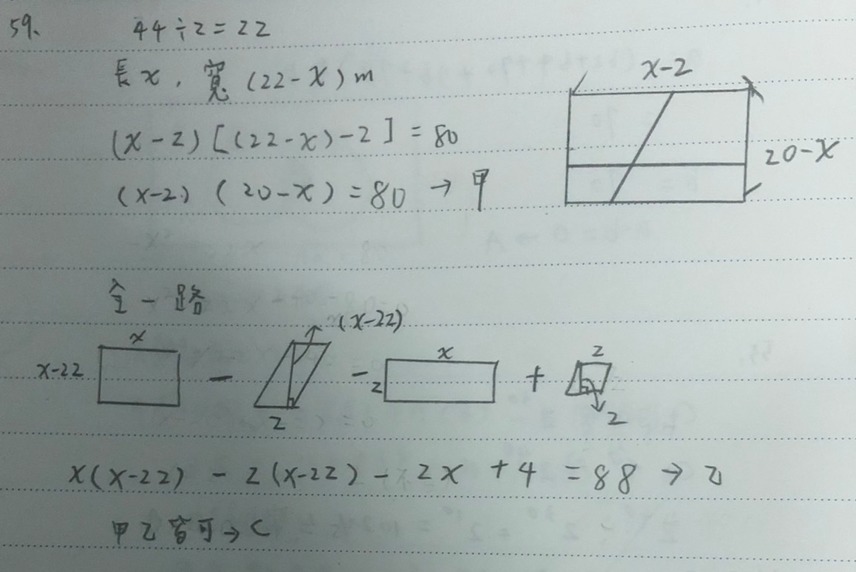 59.
44÷2=22
長x，寬(22-x)m
(x-2)[(22-x)-2]=80
(x-2)(20-x)=80→甲
x-2
20-x
全-路
x
x-22
-
(x-22)
2
-
x
2
+
2
2
x(x-22)-2(x-22)-2x+4=88→乙
甲乙皆可→C